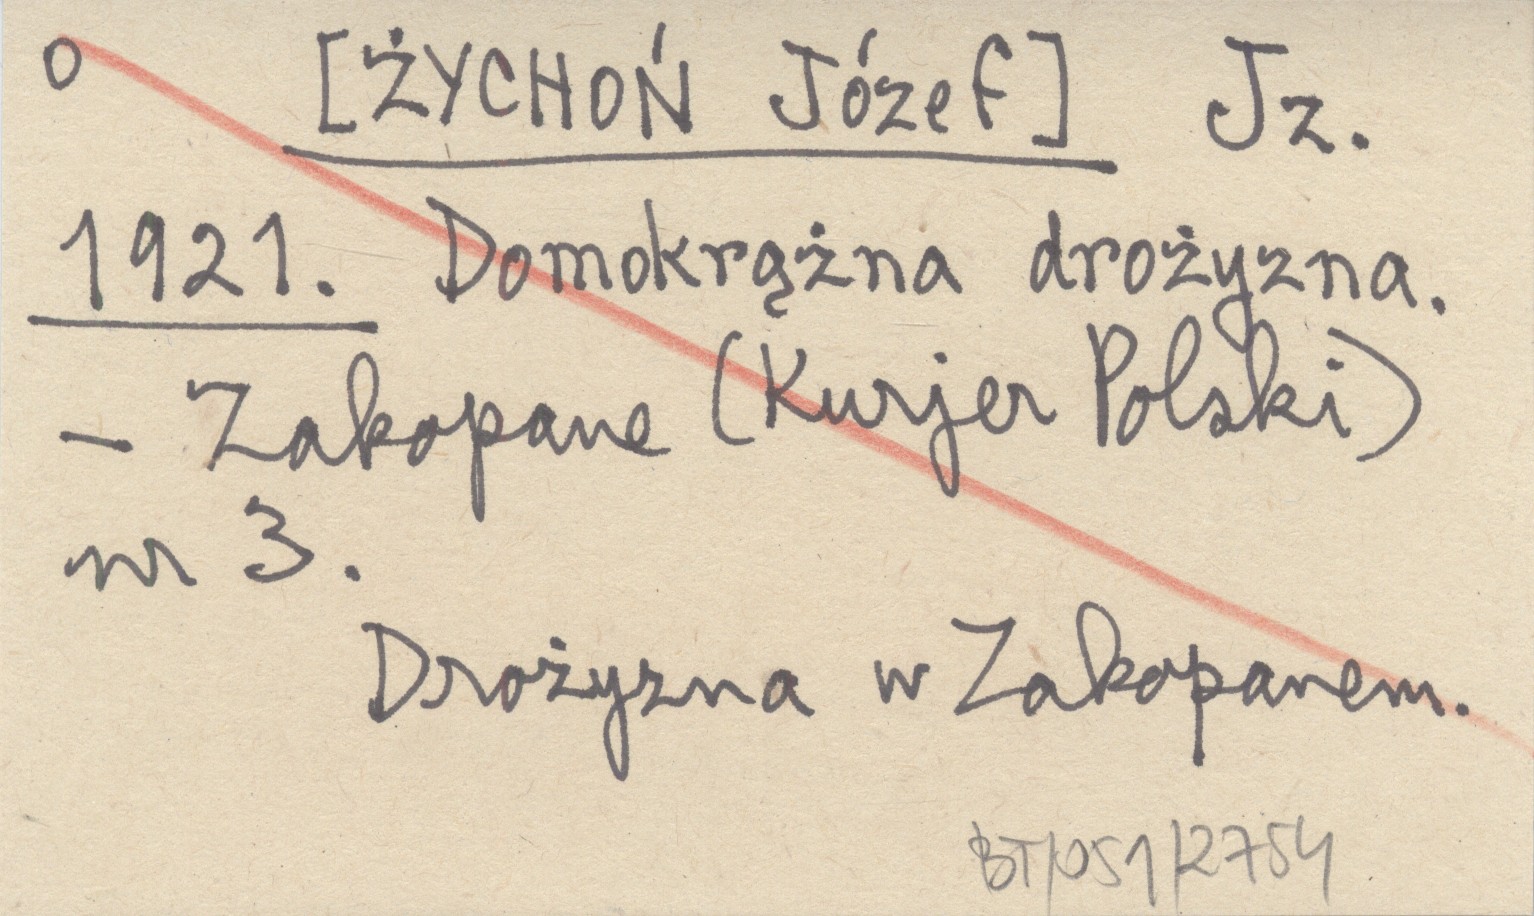 o [ŻYCHOŃ Józef] Jz.
1921. Domokrążna drożyzna.
– Zakopane (Kurjer Polski)
nr 3.
Drożyzna w Zakopanem.
BT/051/2754